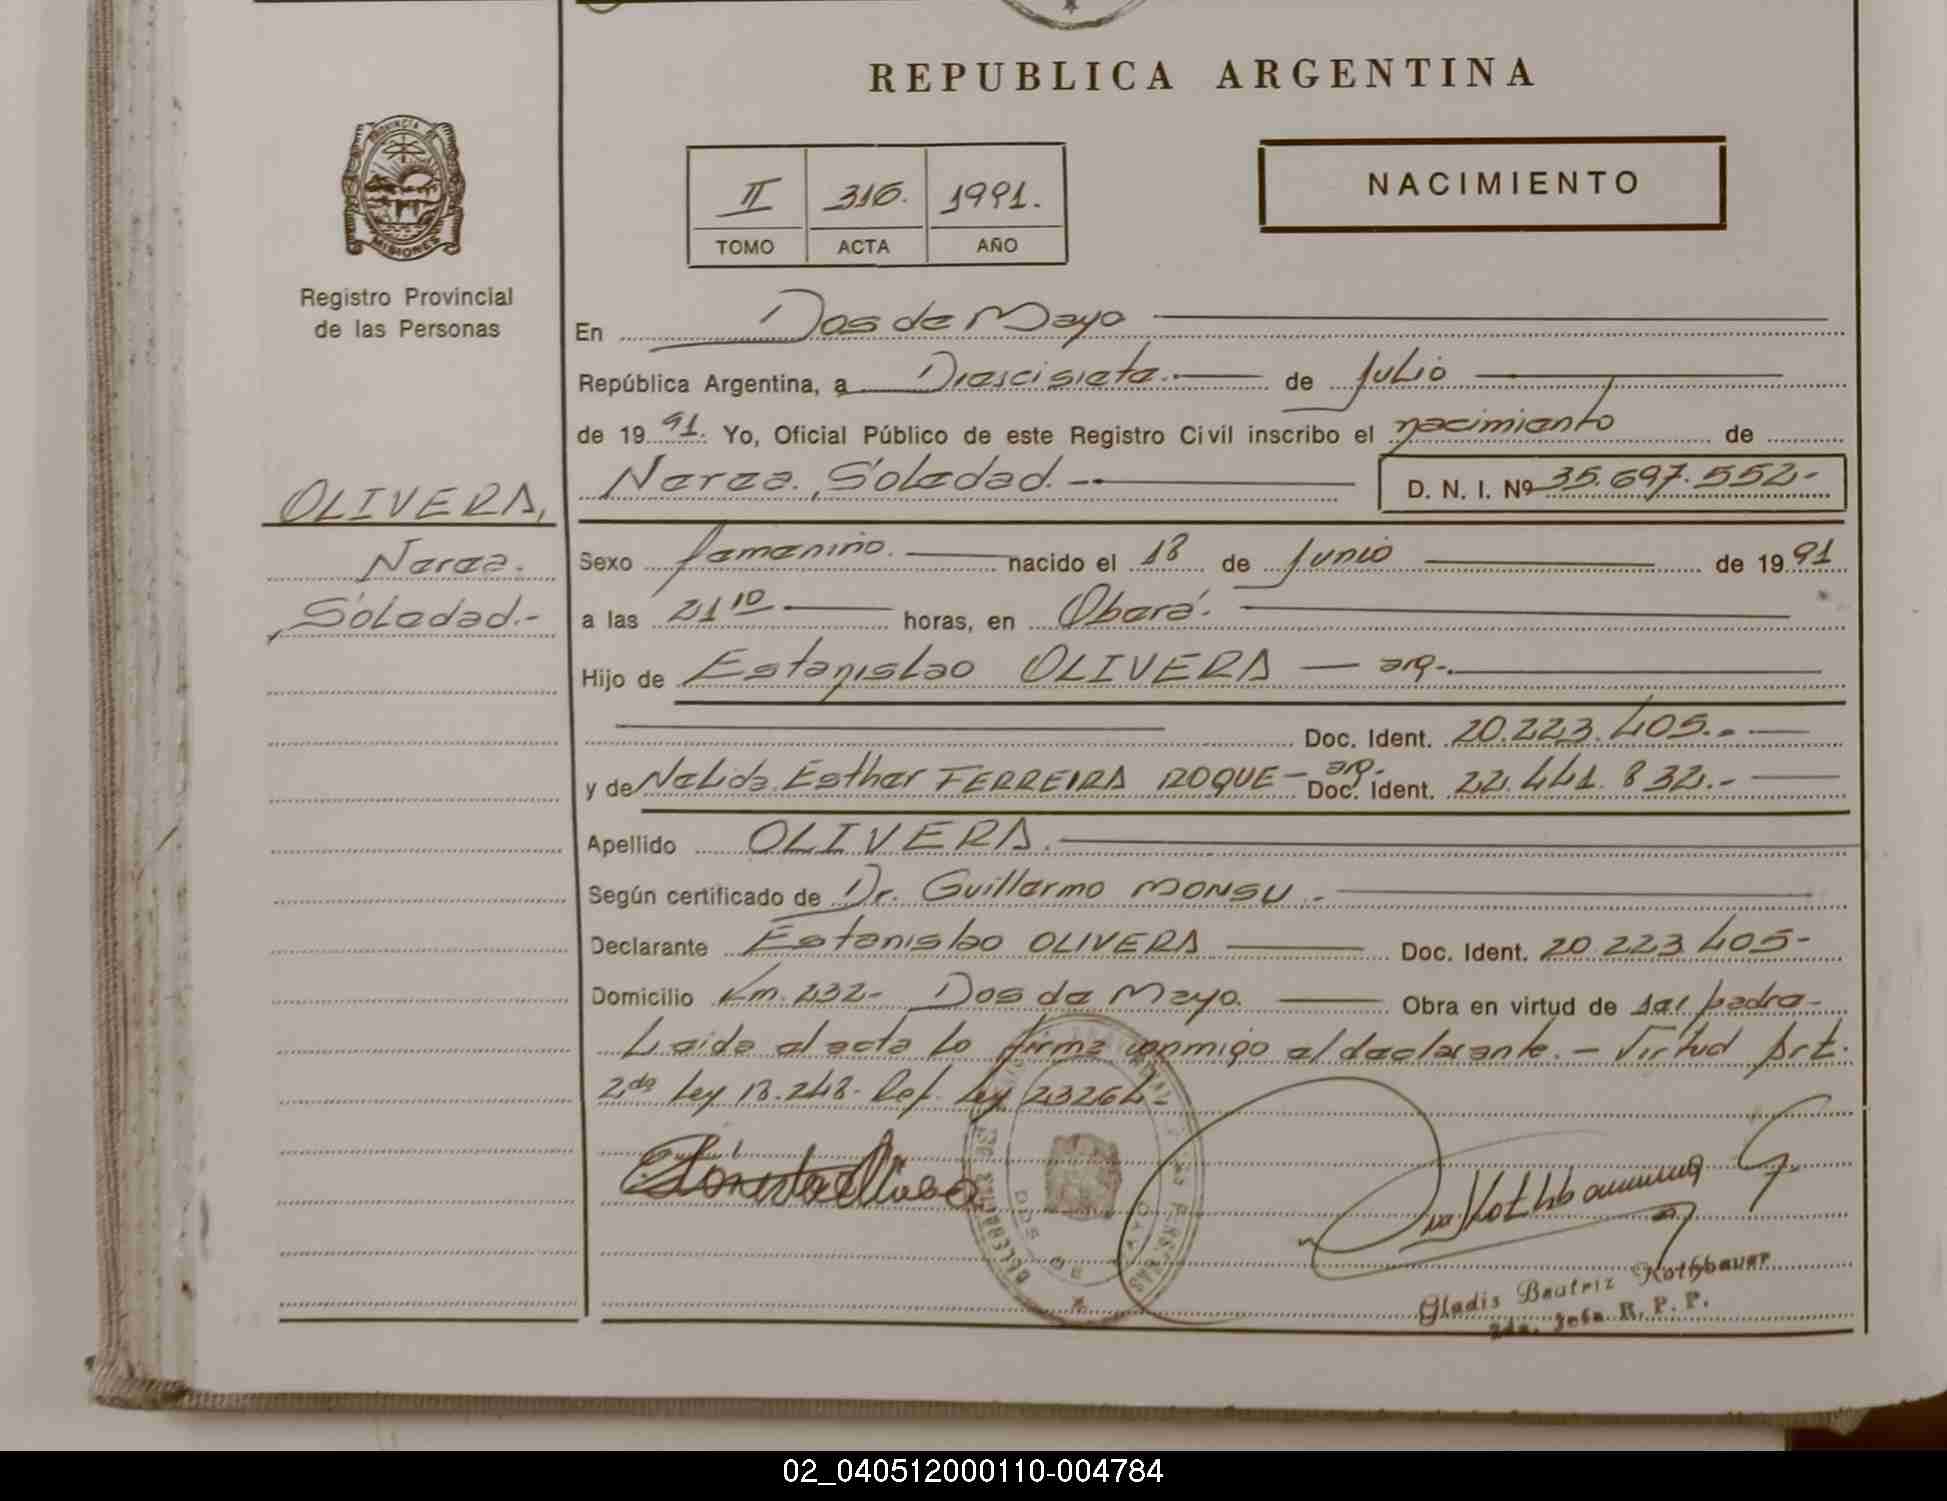 REPUBLICA ARGENTINA
PROVINCIA DE
MISIONES
Registro Provincial
de las Personas
II 316. 1991.
TOMO ACTA AÑO
NACIMIENTO
OLIVERA,
Nerea.
Soledad.-
En Dos de Mayo
República Argentina, a Diescisiete. de Julio
de 1991. Yo, Oficial Público de este Registro Civil inscribo el nacimiento de
Nerea. Soledad. D. N. I. Nº 35.697.552-
Sexo femenino. nacido el 18 de Junio de 1991
a las 21 10 horas, en Oberá.
Hijo de Estanislao OLIVERA — arg.
Doc. Ident. 20.223.405.-
y de Nelida Esther FERREIRA ROQUE - arg.- Doc. Ident. 22.441.832.-
Apellido OLIVERA.
Según certificado de Dr. Guillermo MONSU.-
Declarante Estanislao OLIVERA Doc. Ident. 20.223.405-
Domicilio Km. 232- Dos de Mayo. Obra en virtud de ser padre-
Leida el acta lo firma conmigo el declarante. - Virtud Art.
2do Ley 18.248- Ref. Ley 23264-
DOS DE MAYO
Gladis Beatriz Rothbauer
2da. Jefa R. P. P.
02_040512000110-004784